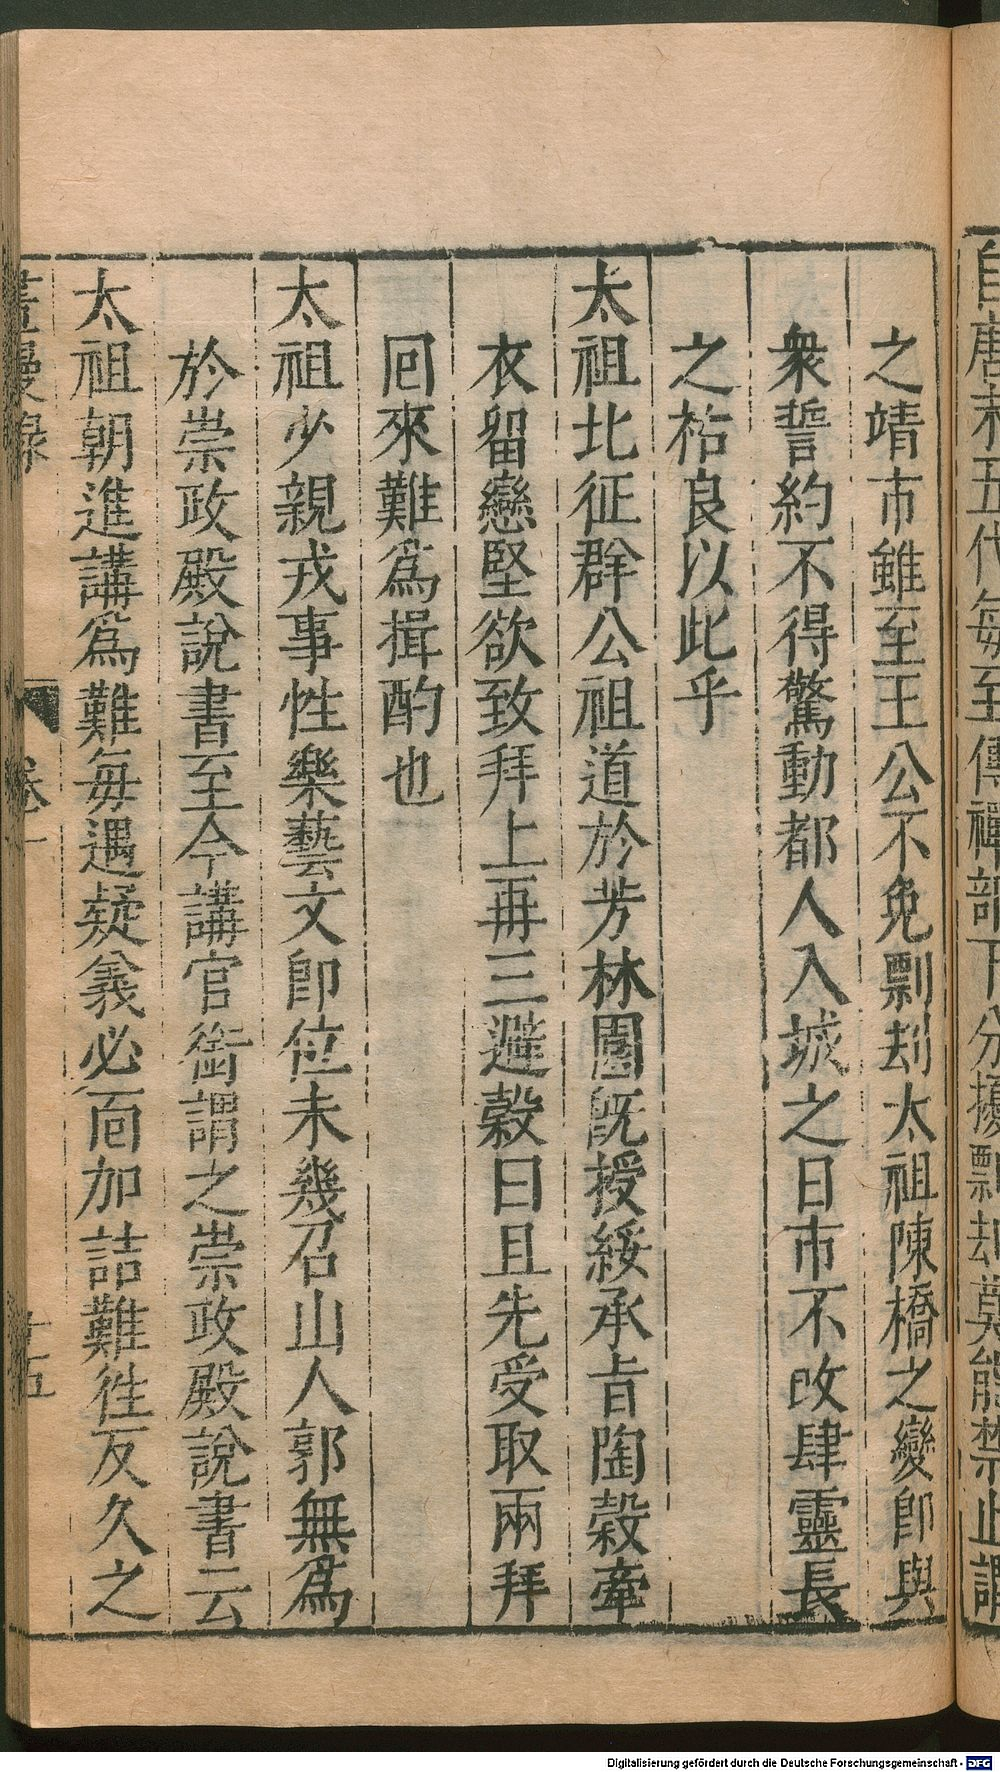 自唐末五代每至傳禪部下分擾剽劫莫能禁止謂
之靖市雖至王公不免剽刦太祖陳橋之變卽與
衆誓約不得驚動都人入城之日市不改肆靈長
之祐良以此乎
太祖北征群公祖道於芳林園旣授綏承旨陶穀牽
衣留戀堅欲致拜上再三避穀曰且先受取兩拜
囘來難爲揖酌也
太祖少親戎事性樂藝文卽位未幾召山人郭無爲
於崇政殿說書至今講官銜謂之崇政殿說書云
太祖朝進講爲難每遇疑義必面加詰難徃反久之
畫墁錄
卷一
十五
Digitalisierung gefördert durch die Deutsche Forschungsgemeinschaft - DFG